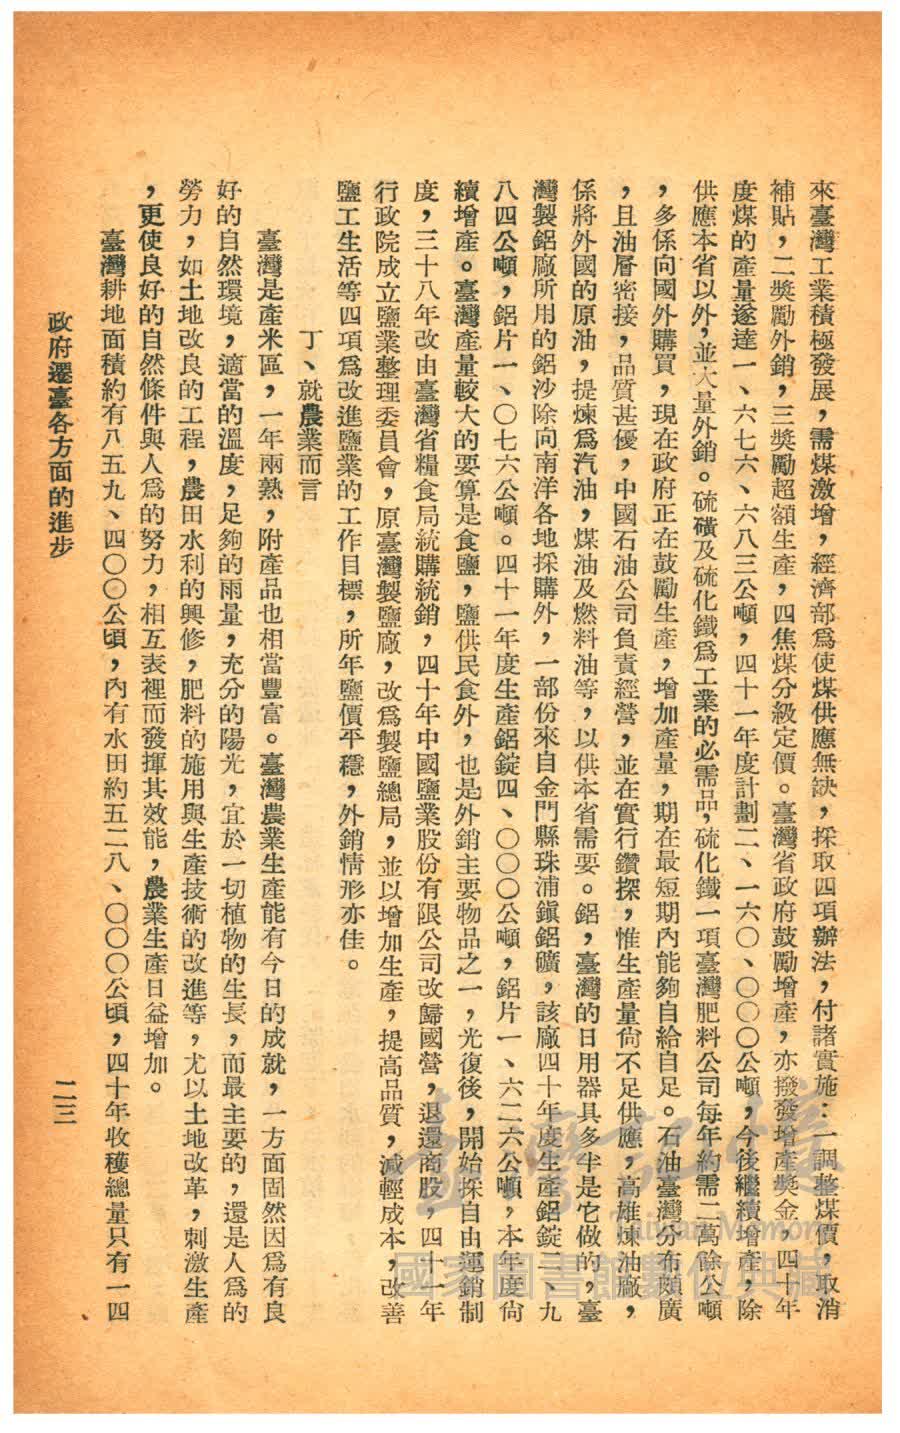 來臺灣工業積極發展，需煤激增，經濟部爲使煤供應無缺，採取四項辦法，付諸實施：一調整煤價，取消
補貼，二獎勵外銷，三獎勵超額生產，四焦煤分級定價。臺灣省政府鼓勵增產，亦撥發增產獎金，四十年
度煤的產量遂達一、六七六、六八三公噸，四十一年度計劃二、一六〇、〇〇〇公噸，今後繼續增產，除
供應本省以外，並大量外銷。硫磺及硫化鐵爲工業的必需品，硫化鐵一項臺灣肥料公司每年約需二萬餘公噸
，多係向國外購買，現在政府正在鼓勵生產，增加產量，期在最短期內能夠自給自足。石油臺灣分布頗廣
，且油層密接，品質甚優，中國石油公司負責經營，並在實行鑽探，惟生產量尙不足供應，高雄煉油廠，
係將外國的原油，提煉爲汽油，煤油及燃料油等，以供本省需要。鋁，臺灣的日用器具多半是它做的，臺
灣製鋁廠所用的鋁沙除向南洋各地採購外，一部份來自金門縣珠浦鎭鋁礦，該廠四十年度生產鋁錠二、九
八四公噸，鋁片一、〇七六公噸。四十一年度生產鋁錠四、〇〇〇公噸，鋁片一、六二六公噸，本年度尙
續增產。臺灣產量較大的要算是食鹽，鹽供民食外，也是外銷主要物品之一，光復後，開始採自由運銷制
度，三十八年改由臺灣省糧食局統購統銷，四十年中國鹽業股份有限公司改歸國營，退還商股，四十一年
行政院成立鹽業整理委員會，原臺灣製鹽廠，改爲製鹽總局，並以增加生產，提高品質，減輕成本，改善
鹽工生活等四項爲改進鹽業的工作目標，所年鹽價平穩，外銷情形亦佳。
丁、就農業而言
臺灣是產米區，一年兩熟，附產品也相當豐富。臺灣農業生產能有今日的成就，一方面固然因爲有良
好的自然環境，適當的溫度，足夠的雨量，充分的陽光，宜於一切植物的生長，而最主要的，還是人爲的
勞力，如土地改良的工程，農田水利的興修，肥料的施用與生產技術的改進等，尤以土地改革，刺激生產
，更使良好的自然條件與人爲的努力，相互表裡而發揮其效能，農業生產日益增加。
臺灣耕地面積約有八五九、四〇〇公頃，內有水田約五二八、〇〇〇公頃，四十年收穫總量只有一四
政府遷臺各方面的進步
二三
臺灣記憶
Taiwan Memory
國家圖書館數位典藏